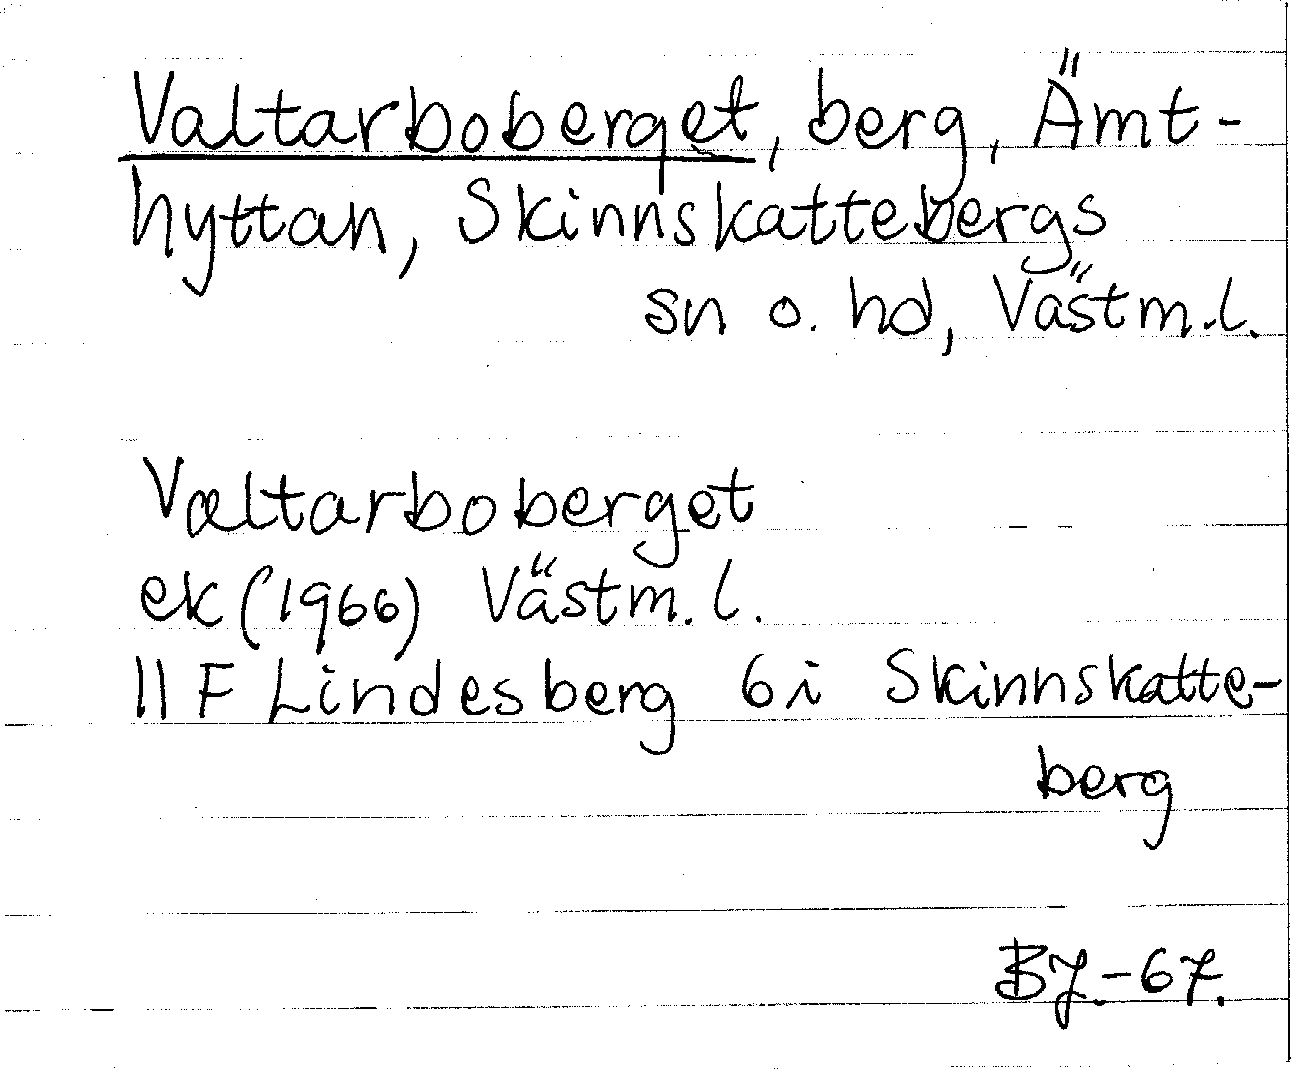 Valtarboberget, berg, Ämt-
hyttan, Skinnskattebergs
sn o. hd, Västm.l.
Valtarboberget
ek (1966) Västm. l.
11 F Lindesberg 6 i Skinnskatte-
berg
BJ.-67.